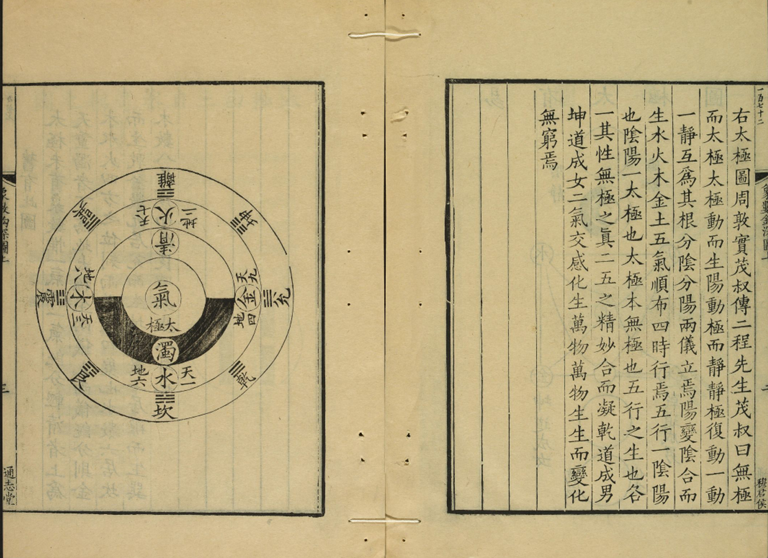 右太極圖周敦實茂叔傳二程先生茂叔曰無極
而太極太極動而生陽動極而靜靜極復動一動
一靜互爲其根分陰分陽兩儀立焉陽變陰合而
生水火木金土五氣順布四時行焉五行一陰陽
也陰陽一太極也太極本無極也五行之生也各
一其性無極之眞二五之精妙合而凝乾道成男
坤道成女二氣交感化生萬物萬物生生而變化
無窮焉
離
坤
兌
乾
坎
艮
震
巽
地二
火
天七
天九
金
地四
天一
水
地六
地八
木
天三
清
氣
太極
濁
三
通志堂